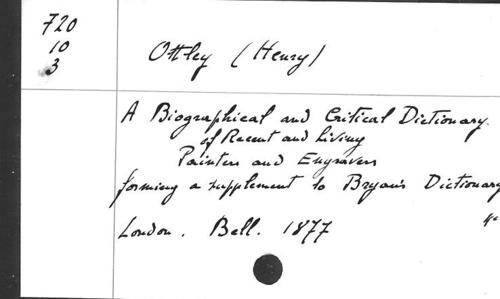 720
10
3
Ottley (Henry)
A Biographical and Critical Dictionary
of Recent and Living
Painters and Engravers
forming a supplement to Bryan's Dictionary
London. Bell. 1877